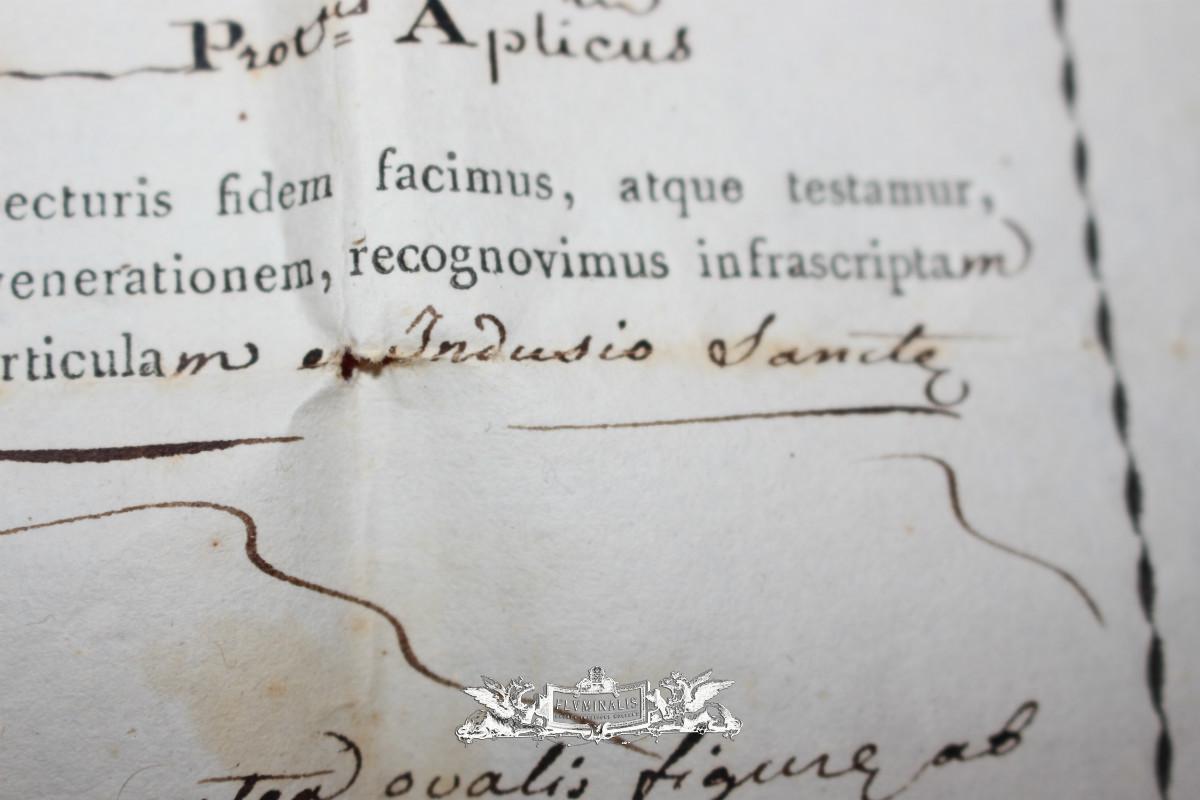 Protus Aplicus
ecturis fidem facimus, atque testamur,
venerationem, recognovimus infrascriptam
rticulam ex Indusio Sanctę
FLVMINALIS
ovalis figurę ab